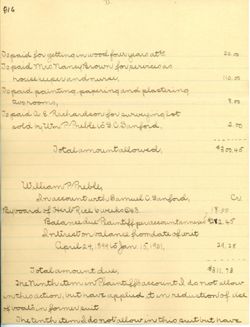 816
To paid for getting in wood four years at 5 20.00
To paid Mrs. Nancy Brown for services as
housekeeper and nurse, 110.00
To paid painting, papering and plastering
two rooms, 8.00
To paid A. E. Richardson for surveying lot
sold Wm P. Preble & S. C. Sanford, 2.00
Total amount allowed, $300.45
William P. Preble,
In account with Samuel C. Sanford, Cr
By board of 3 weeks
Balance due Plaintiff per account annexed
Interest on balance from date of writ
April 24, 1899 to Jan. 15, 1901, 29.28
Total amount due, $311.73
The Ninth item in Plaintiff's account I do not allow
in this action, but have applied it in reduction of
in former suit.
The ninth item I do not allow in this suit but have